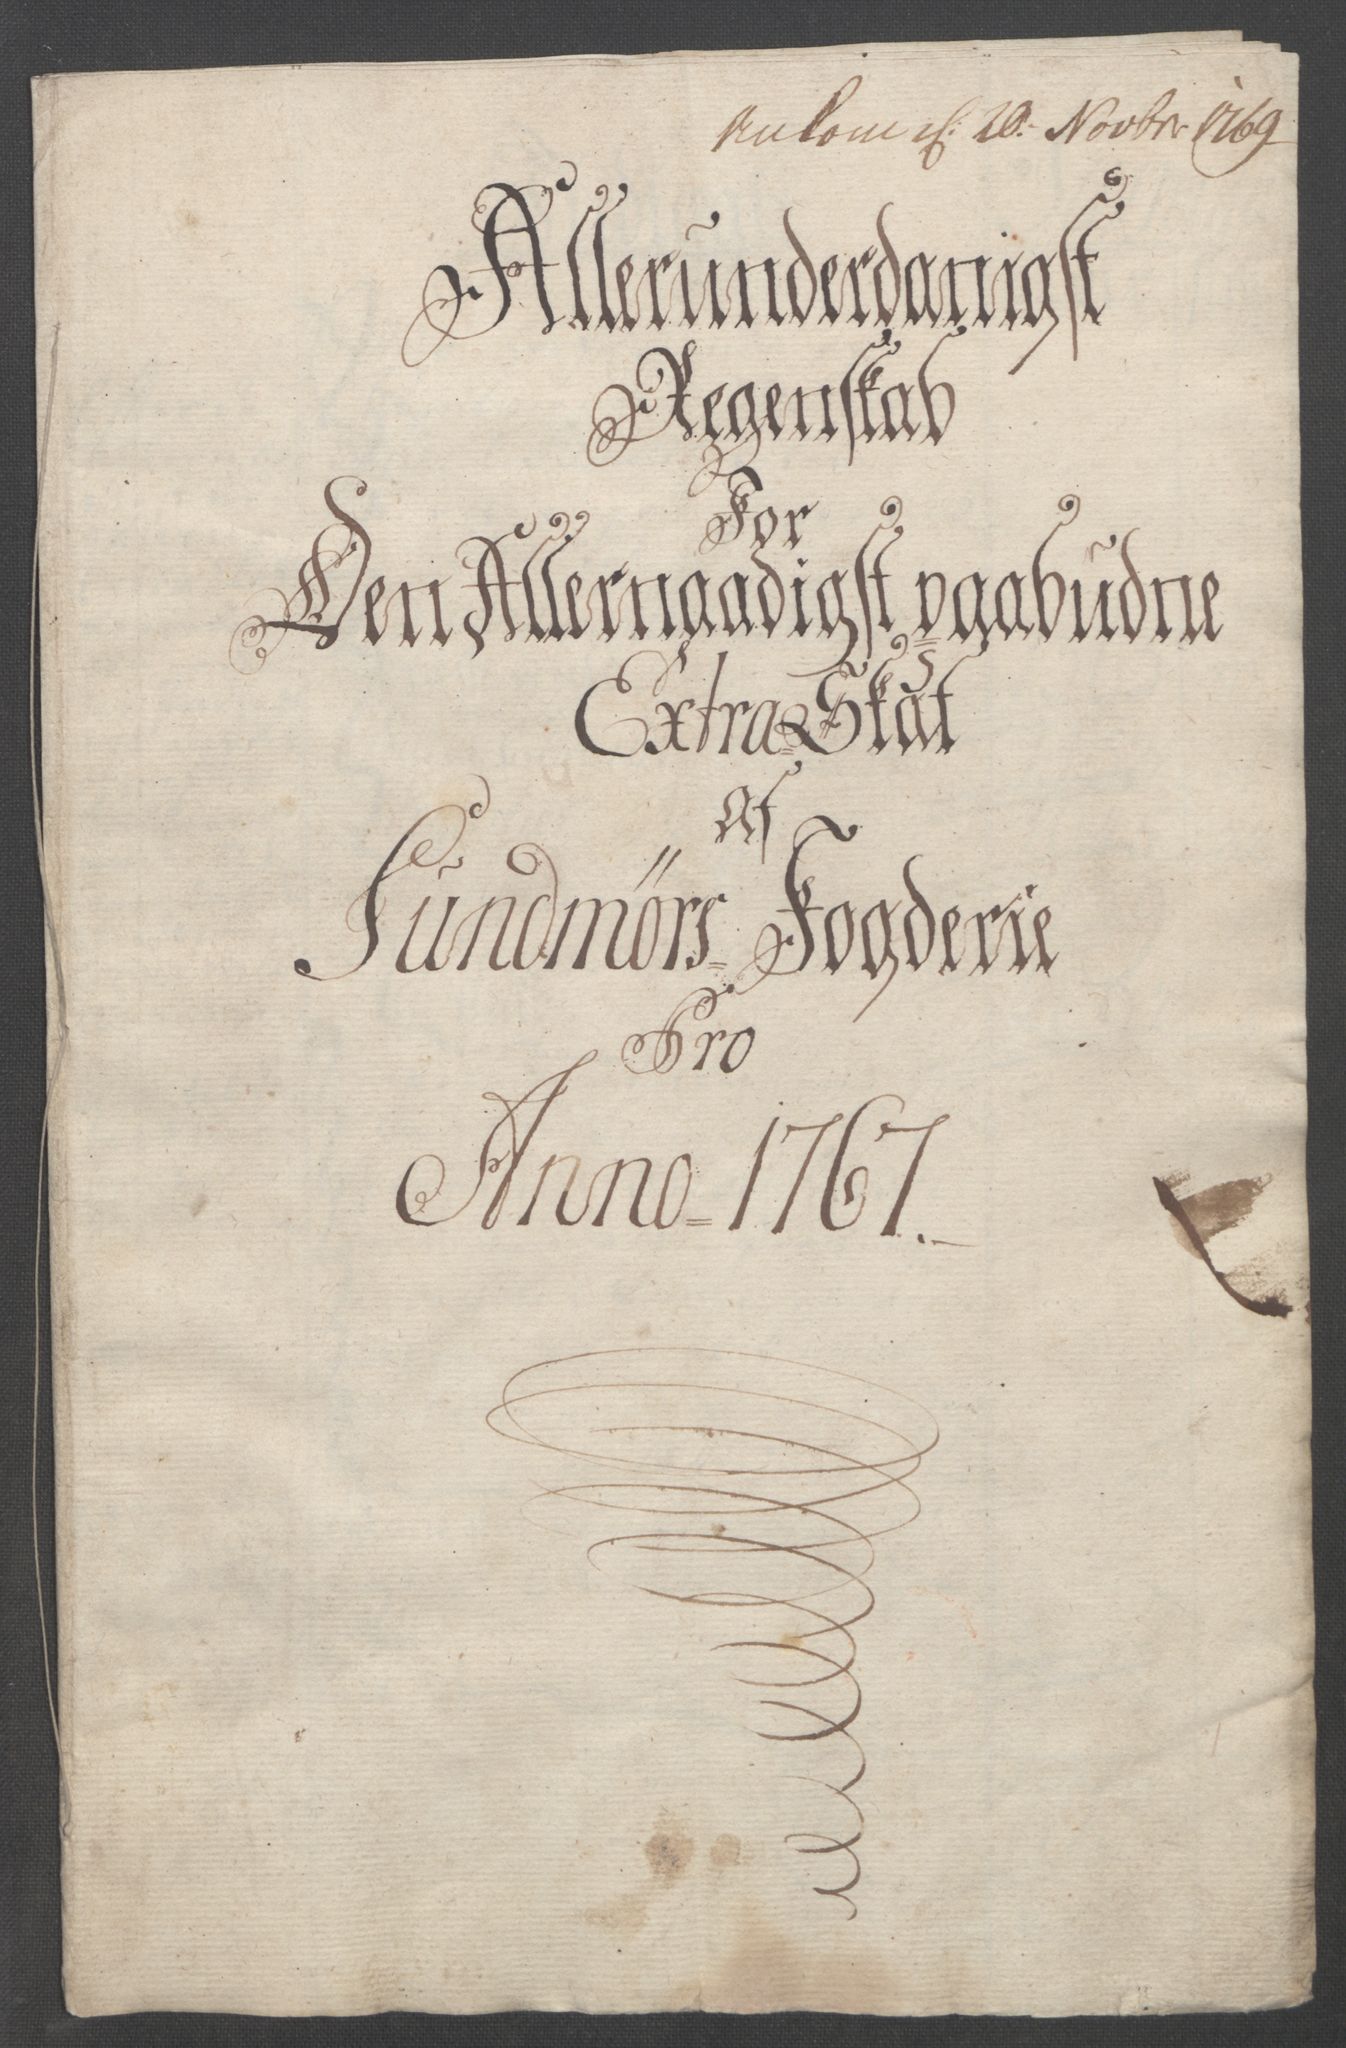 Ankom d: 20. Novbr 1769
Allerunderdanigst
Regenskab
For
Den Allernaadigst pgabudne
Extra=Skat
Af
Sundmørs= Fogderie
Pro
Anno=1767.